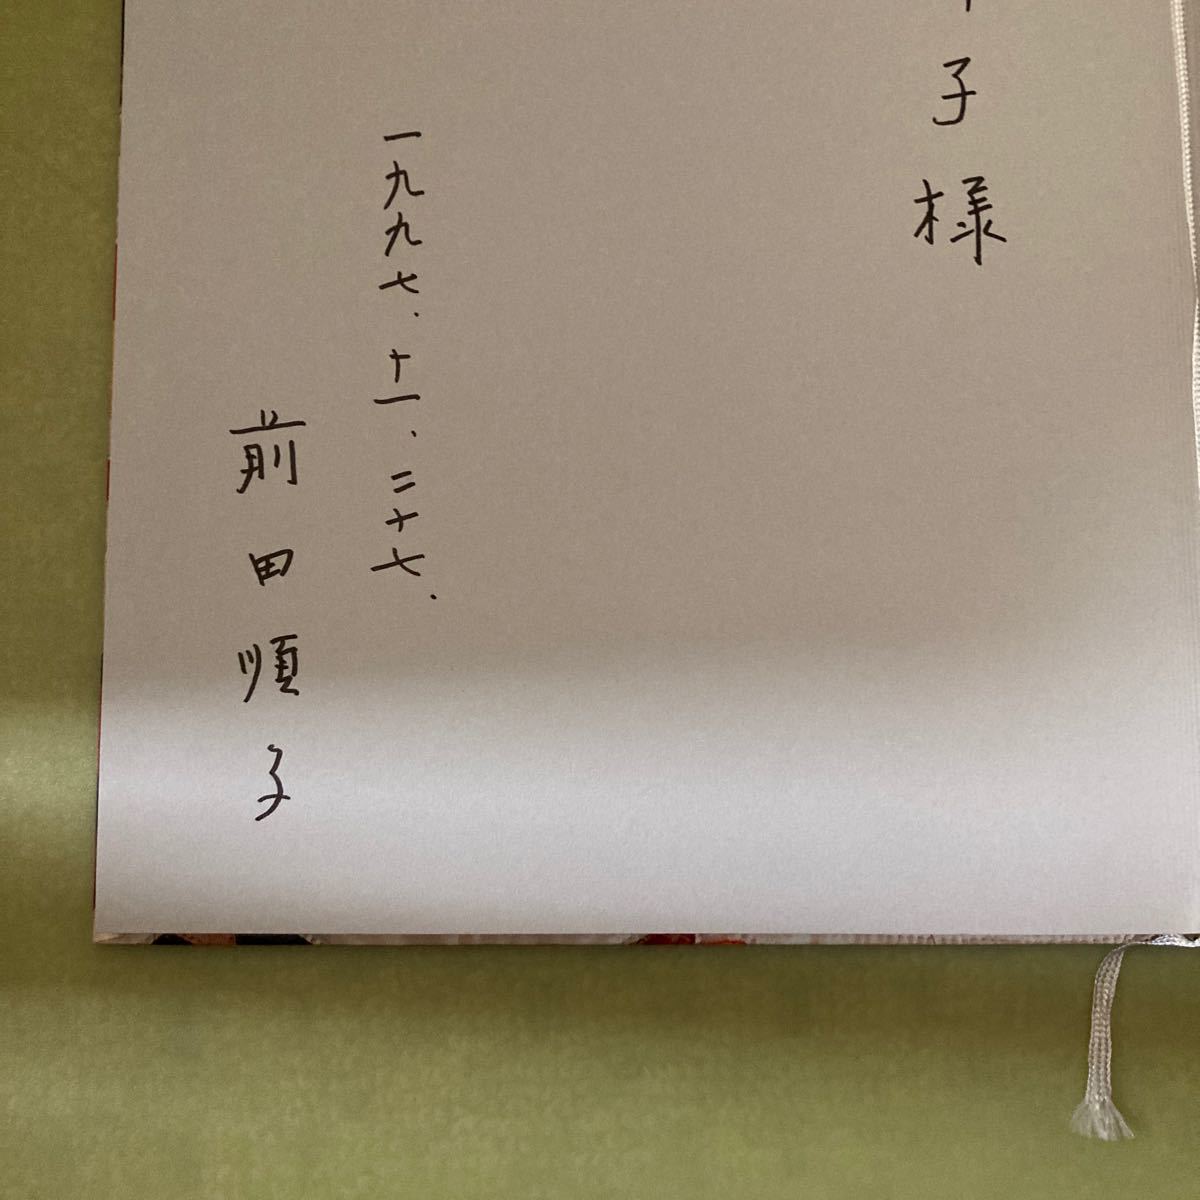 子様
一九九七.十一.二十七.
前田順子